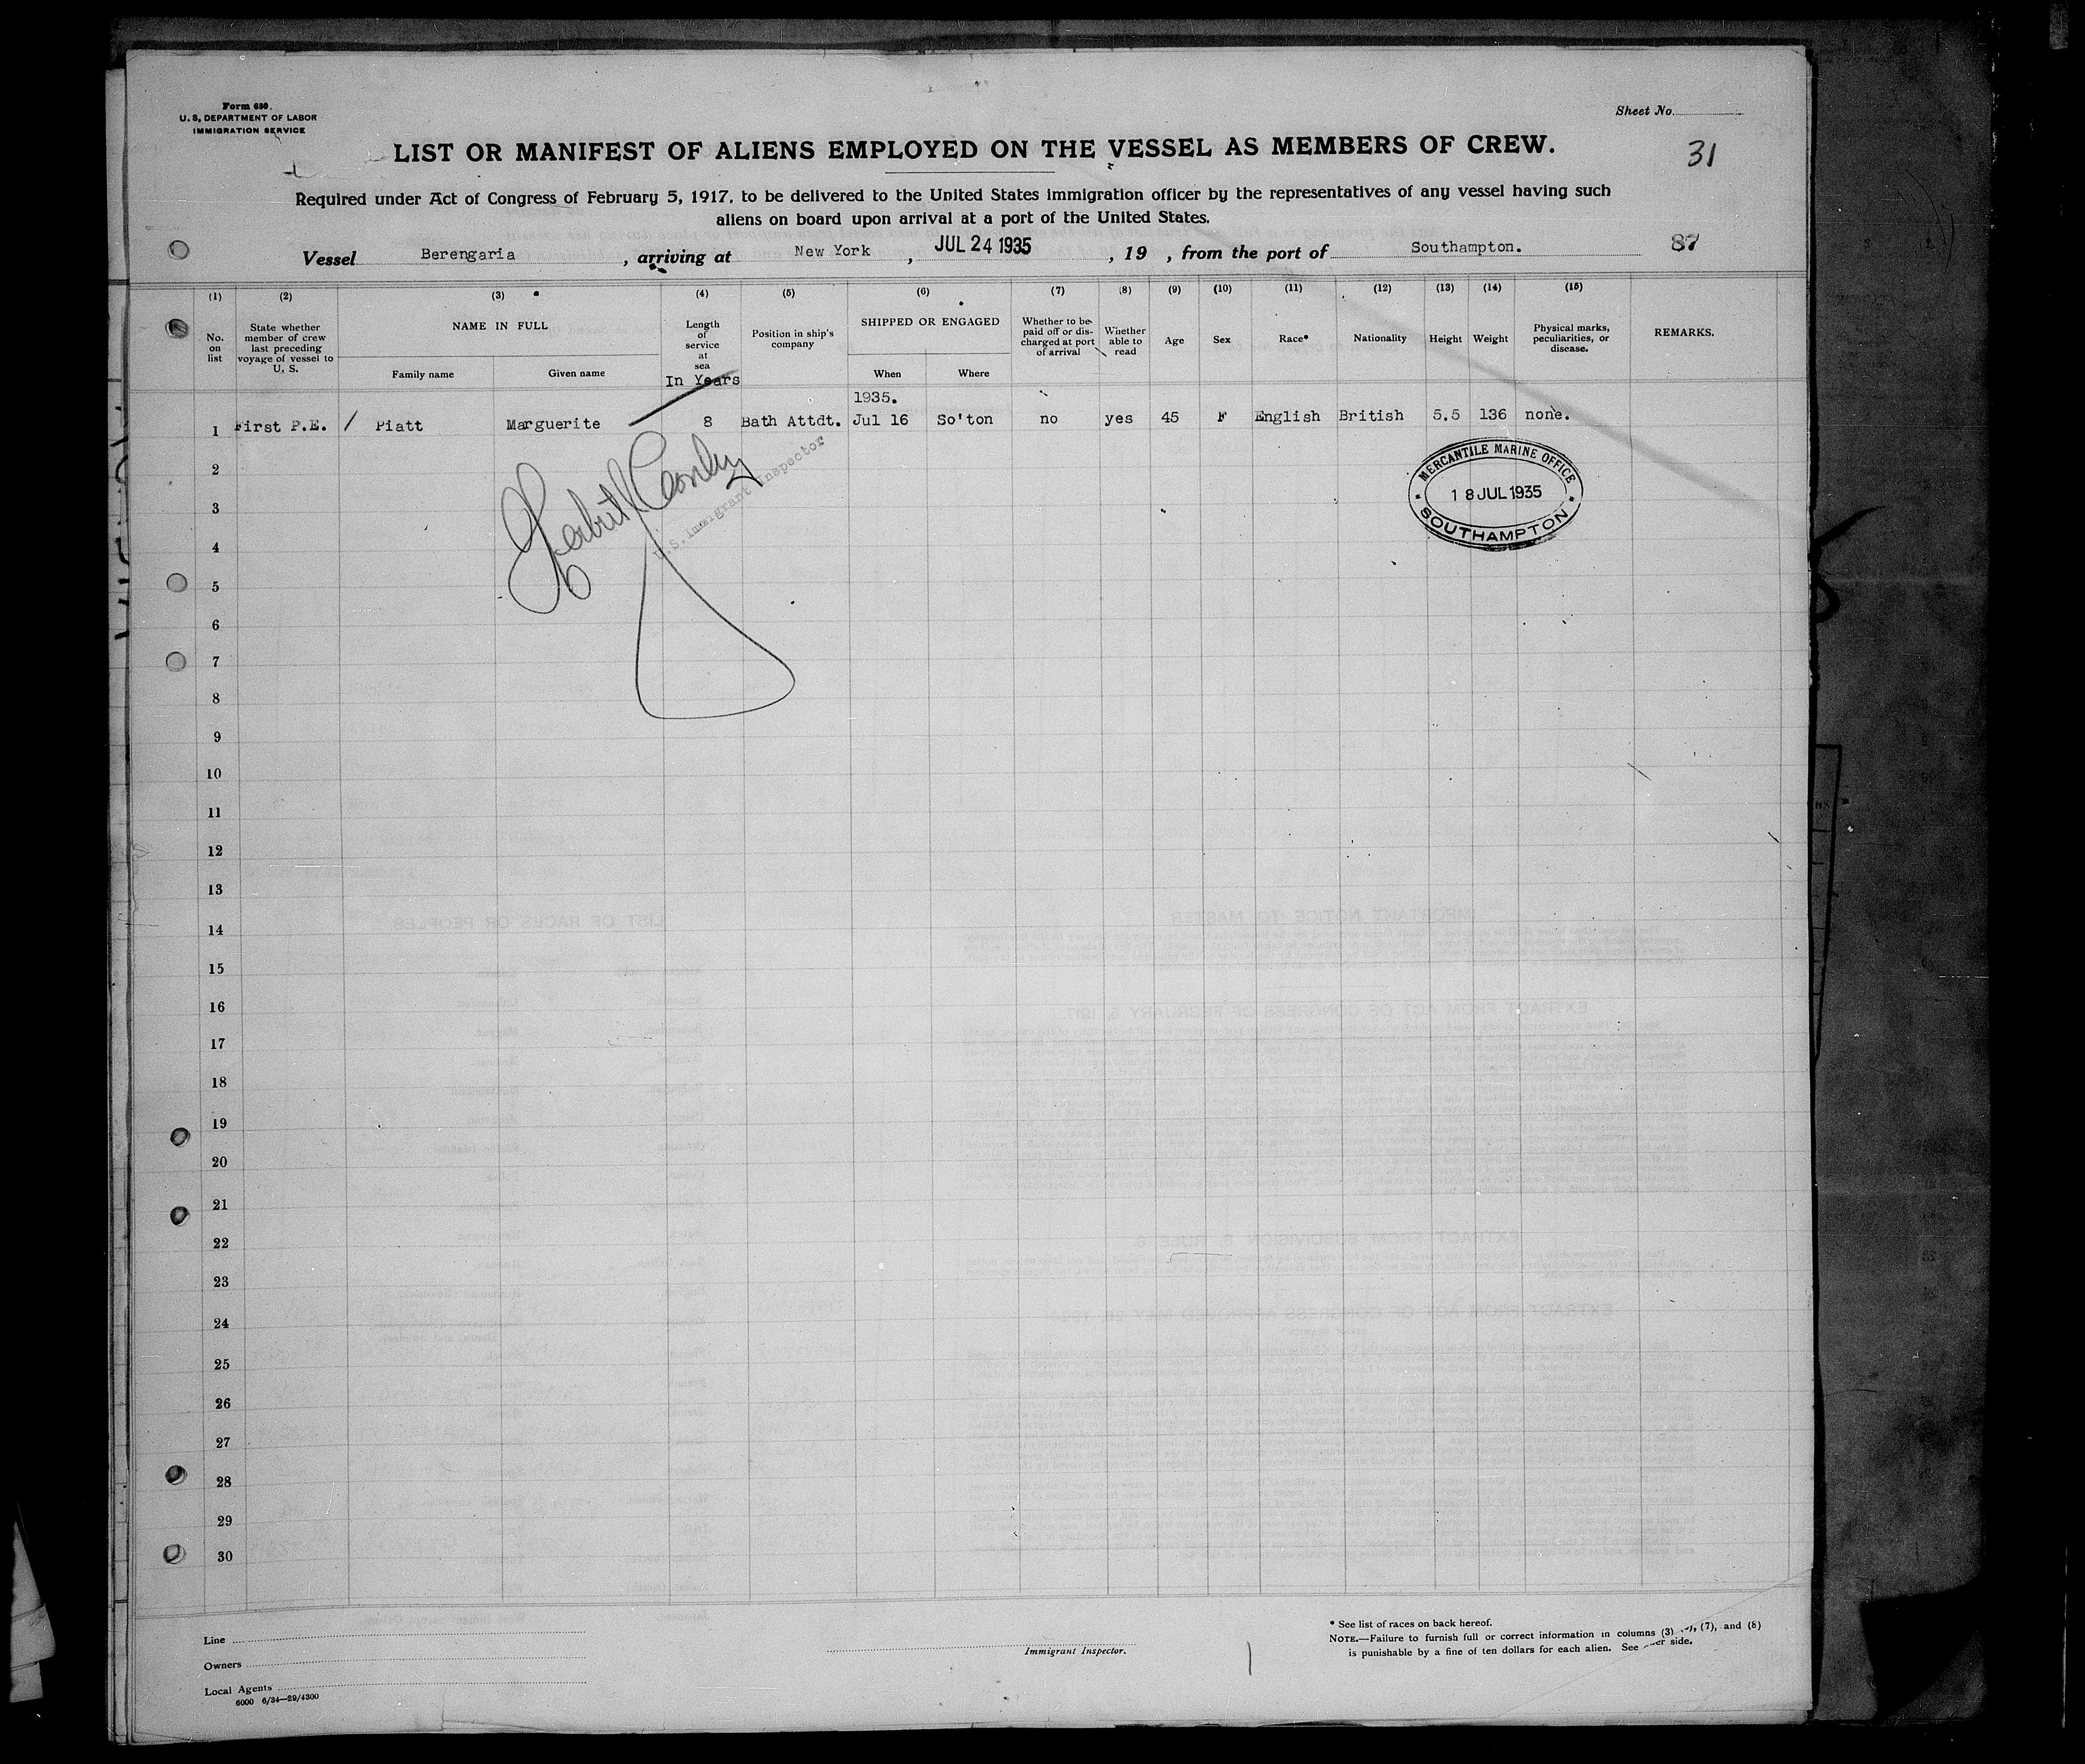 Form 630.
U. S. DEPARTMENT OF LABOR
IMMIGRATION SERVICE
Sheet No.
LIST OR MANIFEST OF ALIENS EMPLOYED ON THE VESSEL AS MEMBERS OF CREW.
31
Required under Act of Congress of February 5, 1917, to be delivered to the United States immigration officer by the representatives of any vessel having such
aliens on board upon arrival at a port of the United States.
Vessel Berengaria, arriving at New York, JUL 24 1935, 19 , from the port of Southampton. 87
(1) (2) (3) (4) (5) (6) (7) (8) (9) (10) (11) (12) (13) (14) (15)
No. on list
State whether member of crew last preceding voyage of vessel to U. S.
NAME IN FULL
Family name
Given name
Length of service at sea
In Years
Position in ship's company
SHIPPED OR ENGAGED
When
Where
Whether to be paid off or discharged at port of arrival
Whether able to read
Age
Sex
Race*
Nationality
Height
Weight
Physical marks, peculiarities, or disease.
REMARKS.
1935.
1 First P.E. / Piatt Marguerite 8 Bath Attdt. Jul 16 So'ton no yes 45 F English British 5.5 136 none.
U.S. Immigrant Inspector
MERCANTILE MARINE OFFICE
18 JUL 1935
SOUTHAMPTON
2
3
4
5
6
7
8
9
10
11
12
13
14
15
16
17
18
19
20
21
22
23
24
25
26
27
28
29
30
Line
Owners
Local Agents
6000 6/34—29/4300
Immigrant Inspector.
* See list of races on back hereof.
NOTE.—Failure to furnish full or correct information in columns (3) (7), and (8)
is punishable by a fine of ten dollars for each alien. See side.